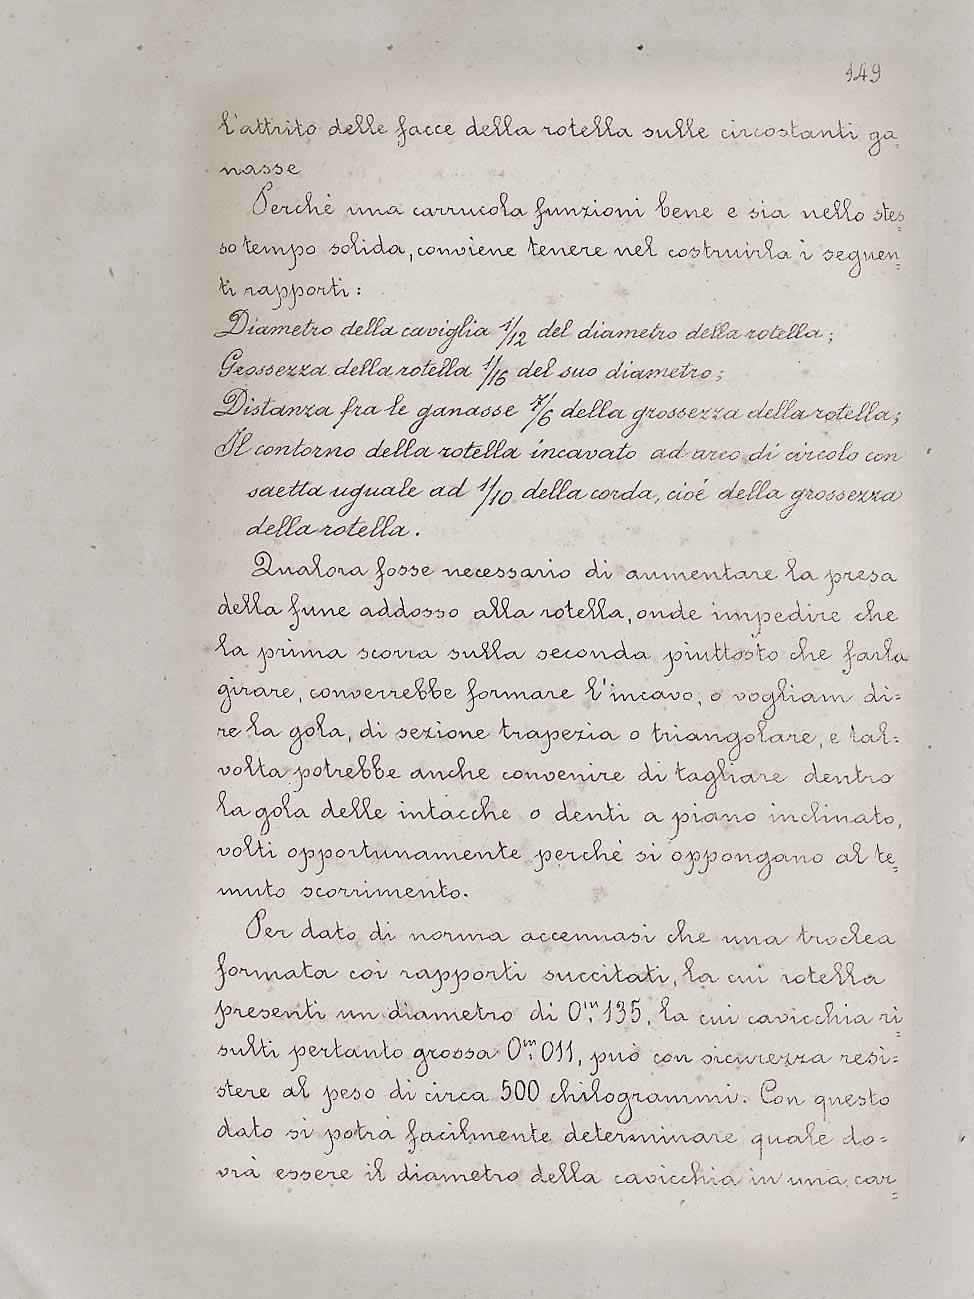 149
l'attrito delle facce della rotella sulle circostanti ga=
nasse
Perchè una carrucola funzioni bene e sia nello stes=
so tempo solida, conviene tenere nel costruirla i seguen=
ti rapporti:
Diametro della caviglia 1/12 del diametro della rotella;
Grossezza della rotella 1/16 del suo diametro;
Distanza fra le ganasse 7/6 della grossezza della rotella;
Il contorno della rotella incavato ad arco di circolo con
saetta uguale ad 1/10 della corda, cioé della grossezza
della rotella.
Qualora fosse necessario di aumentare la presa
della fune addosso alla rotella, onde impedire che
la prima scorra sulla seconda piuttosto che farla
girare, converrebbe formare l'incavo, o vogliam di=
re la gola, di sezione trapezia o triangolare, e tal=
volta potrebbe anche convenire di tagliare dentro
la gola delle intacche o denti a piano inclinato,
volti opportunamente perché si oppongano al te=
muto scorrimento.
Per dato di norma accennasi che una troclea
formata coi rapporti succitati, la cui rotella
presenti un diametro di 0,m135, la cui cavicchia ri=
sulti pertanto grossa 0,m011, può con sicurezza resi=
stere al peso di circa 500 chilogrammi. Con questo
dato si potrà facilmente determinare quale do=
vrà essere il diametro della cavicchia in una car=